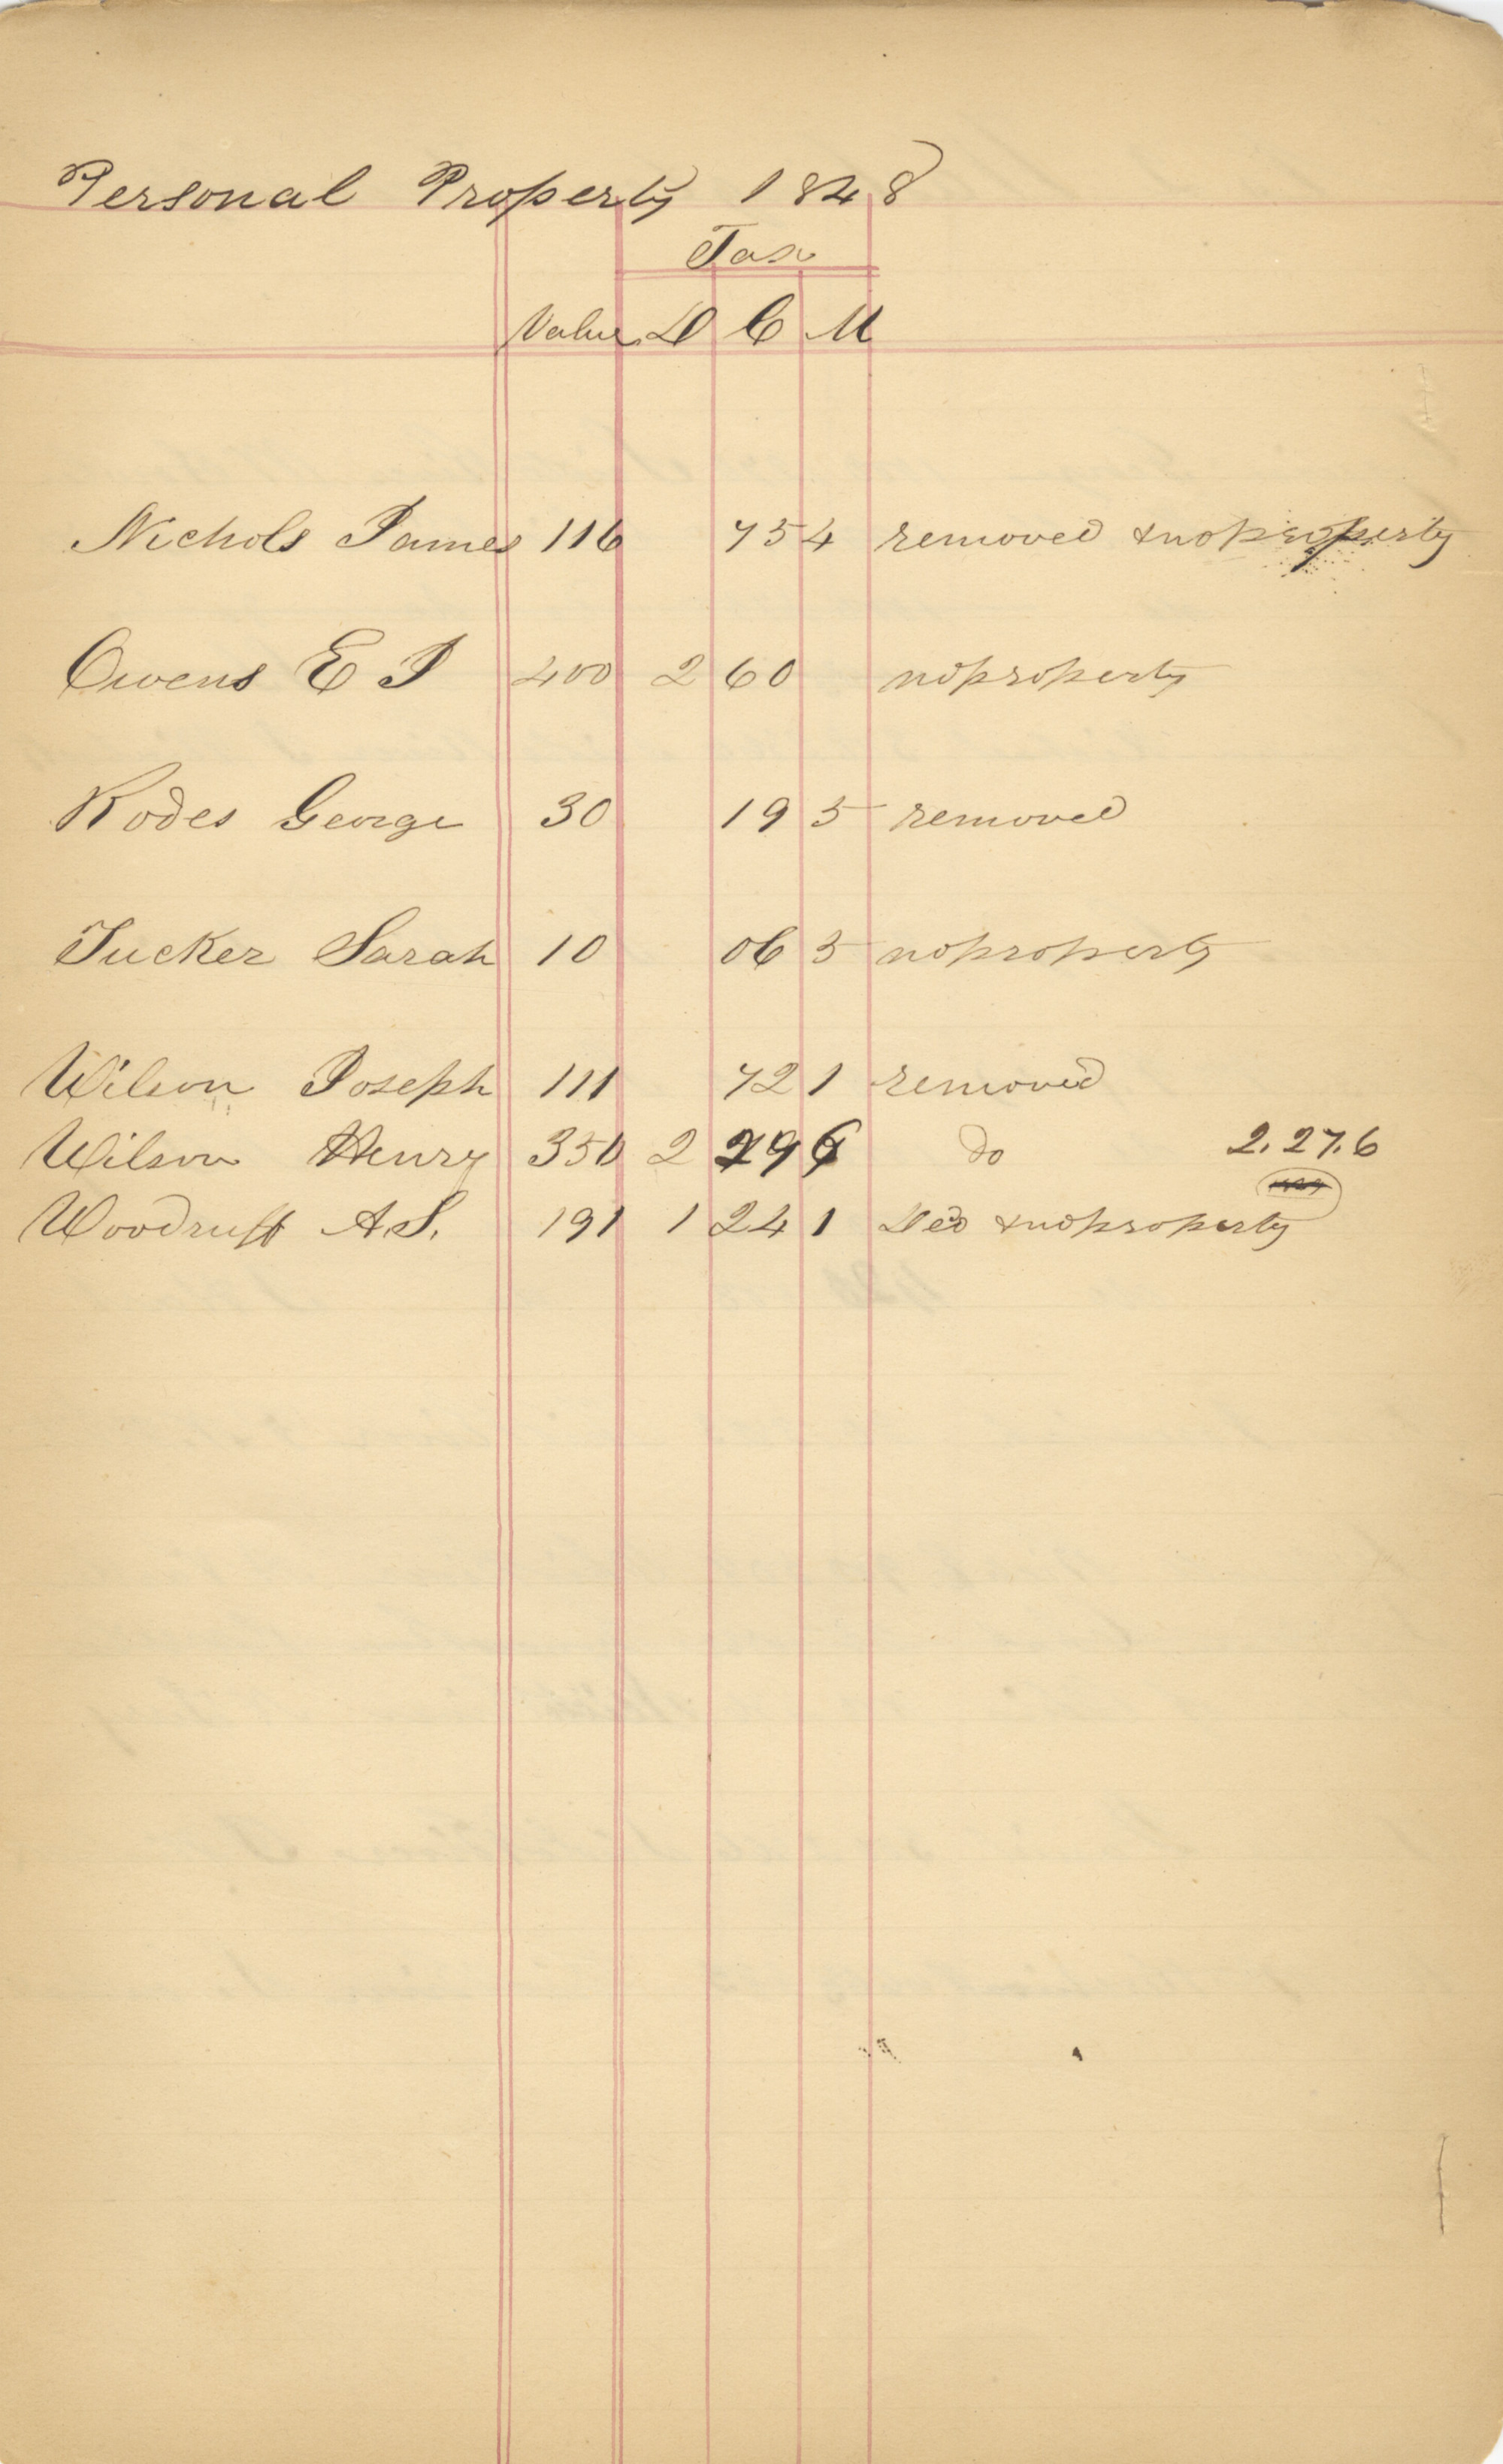 Personal Property 1848
Tax
Value D C M
Nichols James 116 75 4 removed & no property
Owens E J 400 2 60 no property
Rodes George 30 19 5 removed
Tucker Sarah 10 06 5 no property
Wilson Joseph 111 72 1 removed
Wilson Henry 350 2 do 2.27.6
Woodruff A.S. 191 1 24 1 Ded & no property